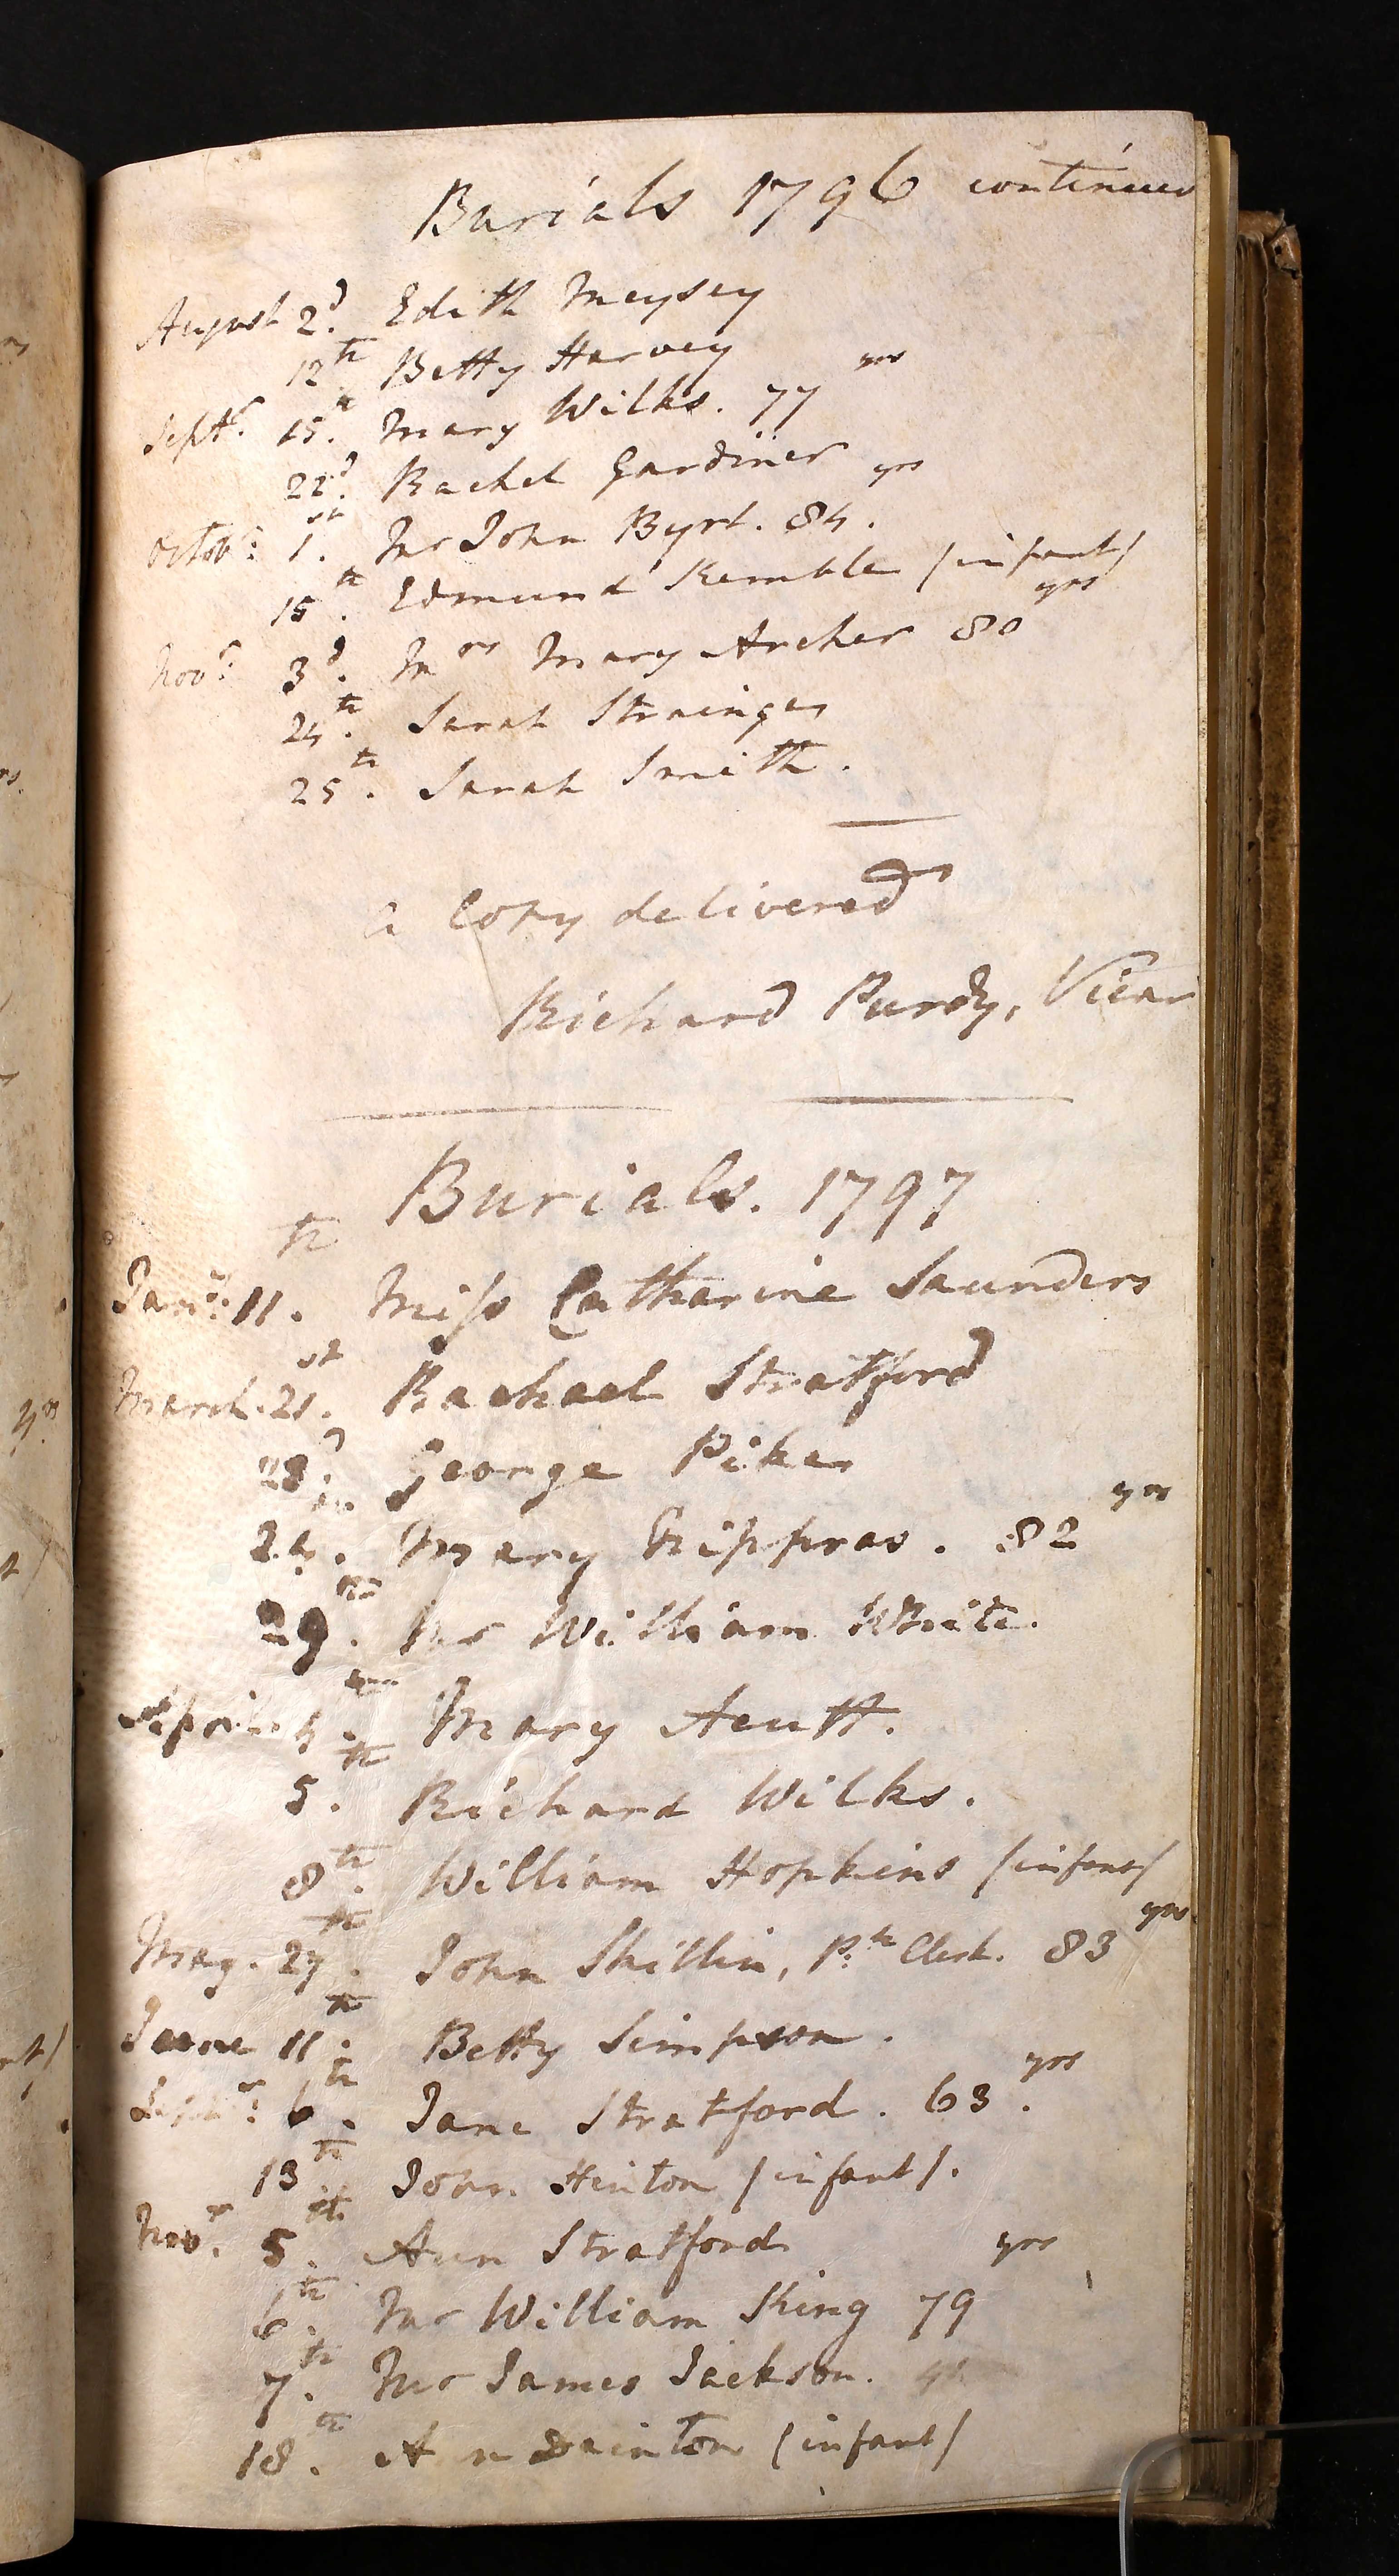 Burials 1796 continued
August 2d. Edith Meysey
12th Betty Harvey
Septr. 15th. Mary Wilks. 77 yrs
22d. Rachel Gardiner
Octobr: 1st. Mr John Byrt. 84. yrs
15th. Edmund Kemble /infant/
Novr: 3d. Mrs Mary Archer 80 yrs
24th. Sarah Strainger
25th. Sarah Smith.
a Copy delivered
Richard Purdy, Vicar
Burials. 1797
Janry: 11th. Miss Catharine Saunders
March. 21st. Rachael Stratford
23d. George Piker
24. Mary 82 yrs
29th. Mr William White.
April. 4th. Mary Acutt.
5th. Richard Wilks.
8th. William Hopkins /infant/
May. 27th. John Skillin, Ph. Clerk. 83 yrs
June 11th. Betty Simpson.
Septr: 6th. Jane Stratford. 63. yrs
13th. John Hinton /infant/.
Novr. 5th. Ann Stratford
6th. Mr William King 79 yrs
7th. Mr James Jackson.
18th. Ann Dainton /infant/